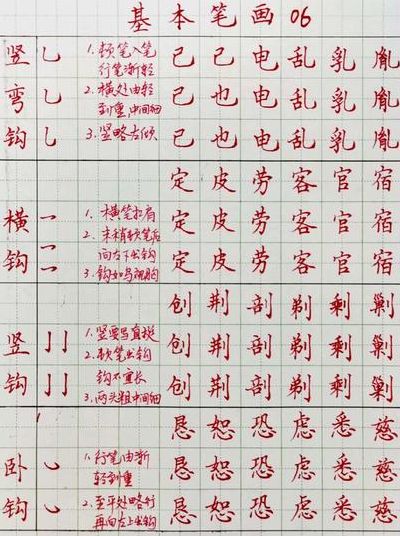 基本笔画06
竖弯钩
1. 顿笔入笔
行笔渐轻
2. 横处由轻
到重,中间细
3. 竖略左倾
己 己 电 乱 乳 胤
己 也 电 乱 乳 胤
己 也 电 乱 乳 胤
横钩
1. 横笔扛肩
2. 末稍顿笔后
向左下出钩
3. 钩如鸟视胸
定 皮 劳 客 官 宿
定 皮 劳 客 官 宿
定 皮 劳 客 官 宿
竖钩
1. 竖要写直挺
2. 顿笔出钩
钩不宜长
3. 两头粗中间细
创 荆 剖 剃 剩 剿
创 荆 剖 剃 剩 剿
创 荆 剖 剃 剩 剿
卧钩
1. 行笔由渐
轻到重
2. 至平处略行
再向左上出钩
恳 恕 恐 虑 悉 慈
恳 恕 恐 虑 悉 慈
恳 恕 恐 虑 悉 慈